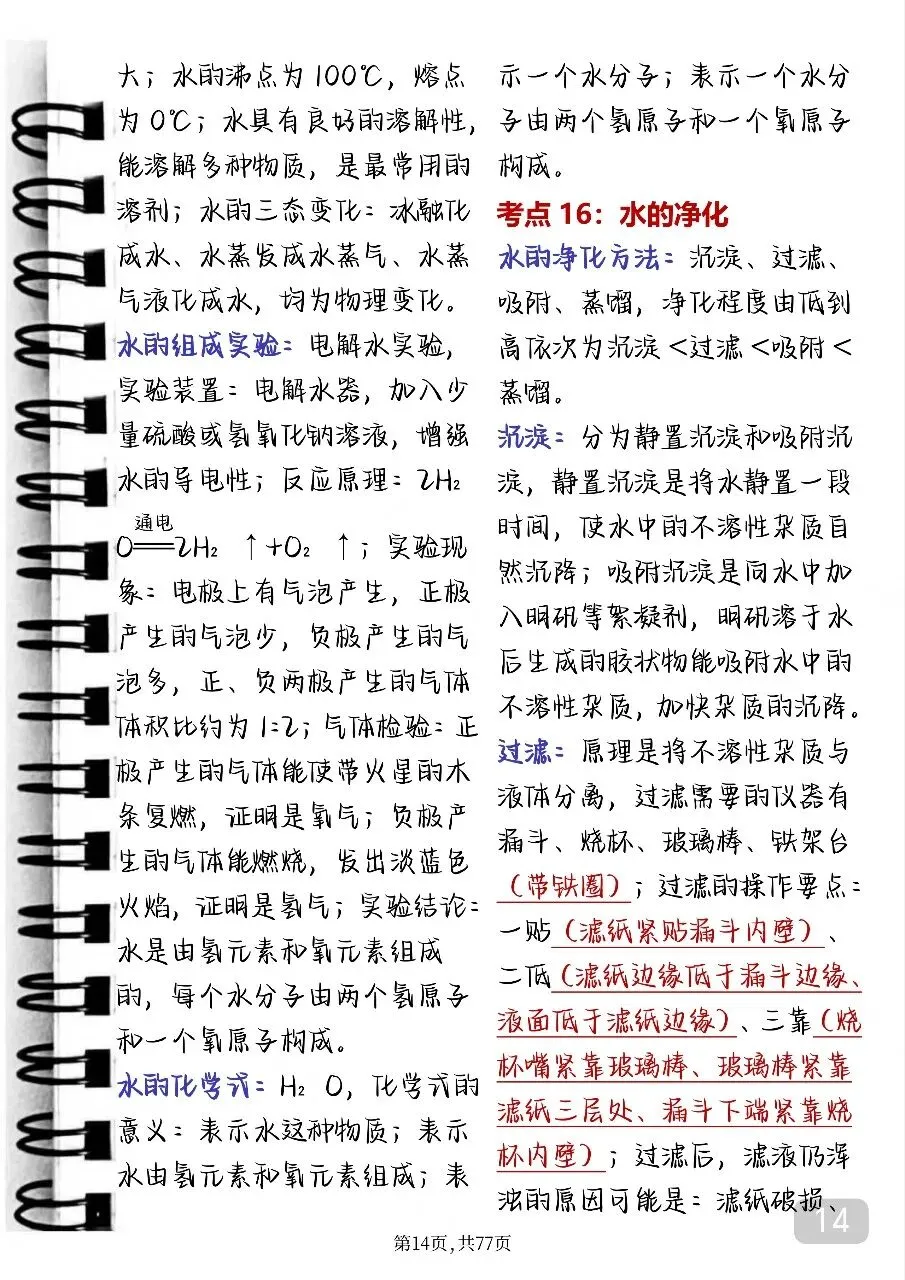 大；水的沸点为100℃，熔点
为0℃；水具有良好的溶解性，
能溶解多种物质，是最常用的
溶剂；水的三态变化：冰融化
成水、水蒸发成水蒸气、水蒸
气液化成水，均为物理变化。
水的组成实验：电解水实验，
实验装置：电解水器，加入少
量硫酸或氢氧化钠溶液，增强
水的导电性；反应原理：2H₂
通电
O══2H₂ ↑+O₂ ↑；实验现
象：电极上有气泡产生，正极
产生的气泡少，负极产生的气
泡多，正、负两极产生的气体
体积比约为1:2；气体检验：正
极产生的气体能使带火星的木
条复燃，证明是氧气；负极产
生的气体能燃烧，发出淡蓝色
火焰，证明是氢气；实验结论：
水是由氢元素和氧元素组成
的，每个水分子由两个氢原子
和一个氧原子构成。
水的化学式：H₂ O，化学式的
意义：表示水这种物质；表示
水由氢元素和氧元素组成；表
示一个水分子；表示一个水分
子由两个氢原子和一个氧原子
构成。
考点 16：水的净化
水的净化方法：沉淀、过滤、
吸附、蒸馏，净化程度由低到
高依次为沉淀＜过滤＜吸附＜
蒸馏。
沉淀：分为静置沉淀和吸附沉
淀，静置沉淀是将水静置一段
时间，使水中的不溶性杂质自
然沉降；吸附沉淀是向水中加
入明矾等絮凝剂，明矾溶于水
后生成的胶状物能吸附水中的
不溶性杂质，加快杂质的沉降。
过滤：原理是将不溶性杂质与
液体分离，过滤需要的仪器有
漏斗、烧杯、玻璃棒、铁架台
（带铁圈）；过滤的操作要点：
一贴（滤纸紧贴漏斗内壁）、
二低（滤纸边缘低于漏斗边缘、
液面低于滤纸边缘）、三靠（烧
杯嘴紧靠玻璃棒、玻璃棒紧靠
滤纸三层处、漏斗下端紧靠烧
杯内壁）；过滤后，滤液仍浑
浊的原因可能是：滤纸破损、
14
第14页,共77页